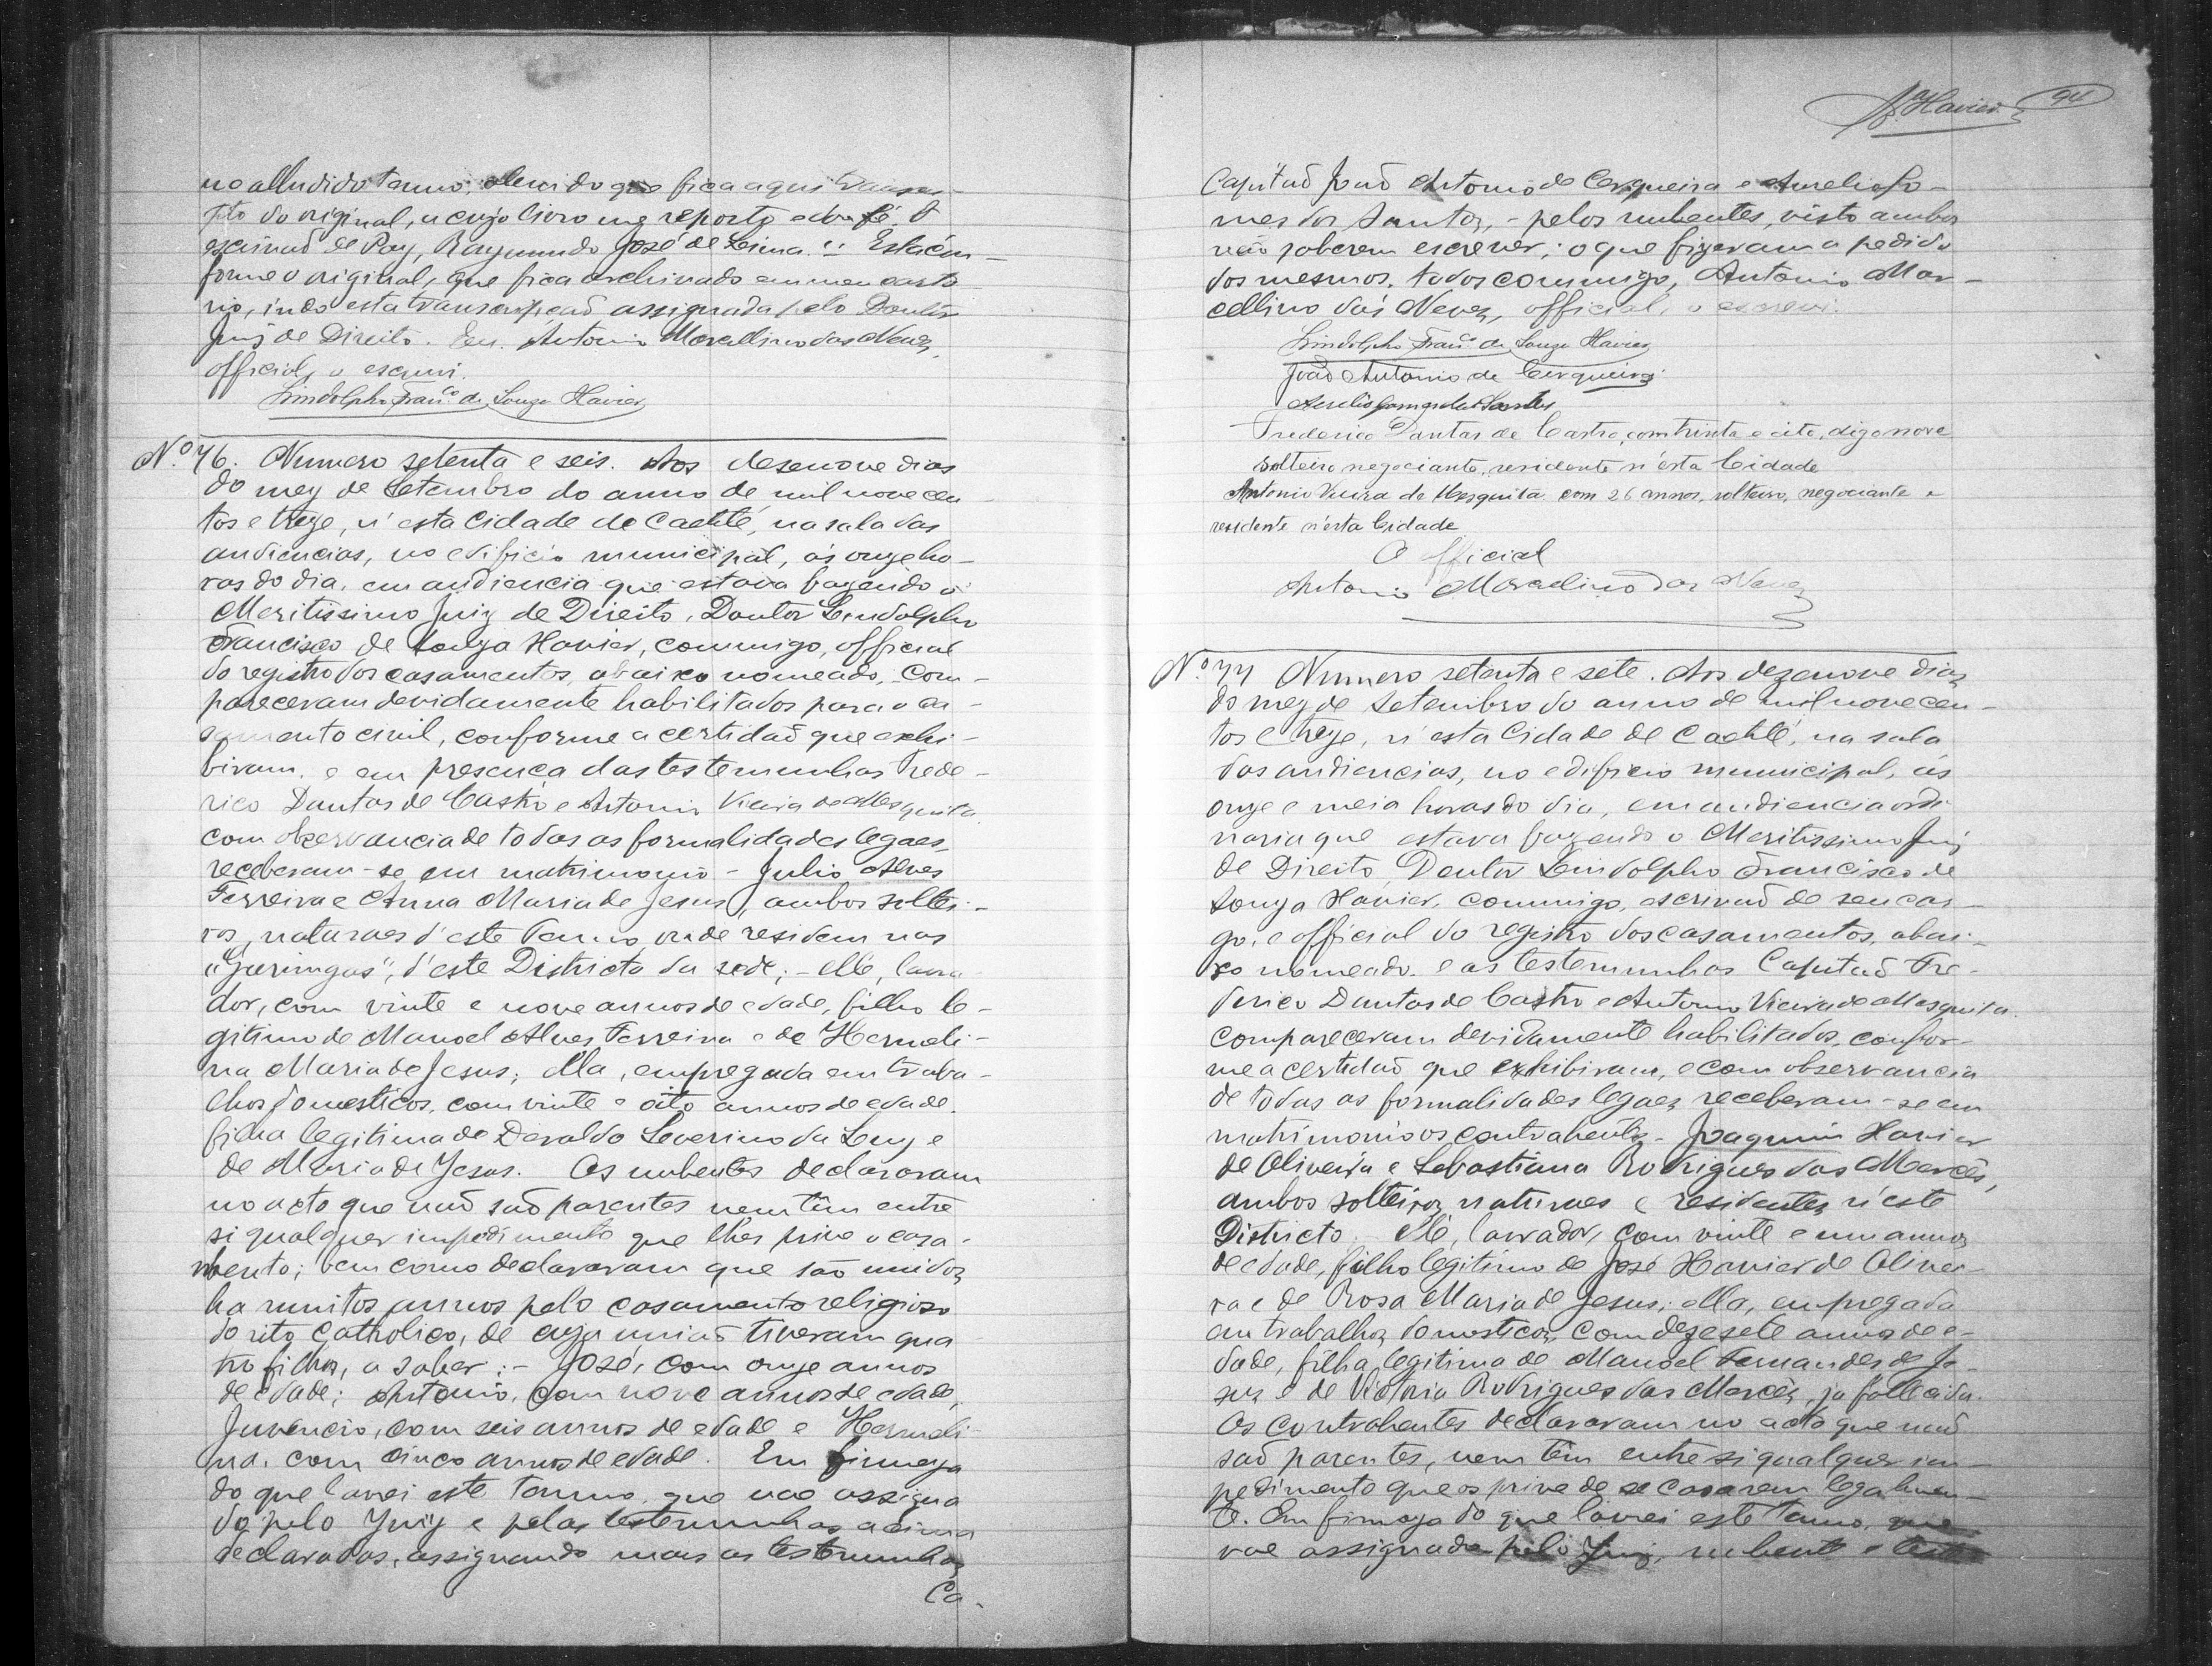 no alludido termo, alem do que fica aqui transcri-
pto do original, a cujo livro me reporto e dou fé. O
escrivaõ de Paz, Raymundo José de Lima." Está con-
forme o original, que fica archivado em meu carto-
rio, indo esta transcripçaõ assignada pelo Doutor
Juiz de Direito. Eu, Antonio Marcellino das Neves,
official, o escrevi.
Lindolpho Fran.co de Souza Xavier
N.º 76. Numero setenta e seis. Aos desenove dias
do mez de Setembro do anno de mil nove cen-
tos e treze, n'esta Cidade de Caeteté, na sala das
audiencias, no edificio municipal, ás onze ho-
ras do dia, em audiencia que estava fazendo o
Meritissimo Juiz de Direito, Doutor Lindolpho
Francisco de Souza Xavier, commigo, official
do registro dos casamentos, abaixo nomeado, com-
pareceram devidamente habilitados para o ca-
samento civil, conforme a certidaõ que exhi-
biram, e em presença das testemunhas Frede-
rico Dantas de Castro e Antonio Vieira de Mesquita
com observancia de todas as formalidades legaes,
receberam-se em matrimonio - Julio Alves
Ferreira e Anna Maria de Jesus, ambos soltei-
ros, naturaes d'este Termo, onde residem nas
d'este Districto da sede; - elle, lavra-
dor, com vinte e nove annos de edade, filho le-
gitimo de Manoel Alves Ferreira e de Hermeli-
na Maria de Jesus; ella, empregada em traba-
lhos domesticos, com vinte e oito annos de edade,
filha legitima de Severino da Luz e
de Maria de Jesus. Os nubentes declararam
no acto que naõ saõ parentes nem têm entre
si qualquer impedimento que lhes prive o casa-
mento; bem como declararam que são unidos
ha muitos annos pelo casamento religioso
do rito Catholico, de cuja uniaõ tiveram qua
tro filhos, a saber: - José, com onze annos
de edade; Antonio, com nove annos de edade,
Juvencio, com seis annos de edade e Hermeli-
na, com cinco annos de edade. Em firmeza
do que lavrei este termo, que vae assigna
do pelo Juiz e pelas testemunhas acima
declaradas, assignando mais as testemunhas
Ca-
Xavier 94
Capitaõ Joaõ Antonio de Cerqueira e Aurelio Go-
mes dos Santos, - pelos nubentes, visto ambos
não saberem escrever; o que fizeram a pedido
dos mesmos, todos commigo, Antonio Mar-
cellino das Neves, official, o escrevi.
Lindolpho Fran.co de Souza Xavier
João Antonio de Cerqueira
Aurelio Gomes dos Santos
Frederico Dantas de Castro, com trinta e oito, digo nove
solteiro negociante, residente n'esta Cidade
Antonio Vieira de Mesquita com 26 annos, solteiro, negociante e
residente n'esta Cidade
O Official
Antonio Marcelino das Neves
N.º 77 Numero setenta e sete. Aos dezenove dias
do mez de Setembro do anno de mil nove cen-
tos e treze, n'esta Cidade de Caeteté, na sala
das audiencias, no edificio municipal, ás
onze e meia horas do dia, em audiencia ordi-
naria que estava fazendo o Meritissimo Juiz
de Direito, Doutor Lindolpho Francisco de
Souza Xavier, commigo, escrivaõ de seu car-
go, e official do registro dos casamentos, abai-
xo nomeado, e as testemunhas Capitaõ Fre-
derico Dantas de Castro e Antonio Vieira de Mesquita
compareceram devidamente habilitados, confor-
me a certidaõ que exhibiram, e com observancia
de todas as formalidades legaes receberam-se em
matrimonio os contrahentes - Joaquim Xavier
de Oliveira e Sebastiana Rodrigues das Mercês,
ambos solteiros, naturaes e residentes n'este
Districto. Elle, lavrador, com vinte e um annos
de edade, filho legitimo de José Xavier de Olivei-
ra e de Rosa Maria de Jesus; ella, empregada
em trabalhos domesticos, com dezesete annos de e-
dade, filha legitima de Manoel Fernandes de Je-
sus e de Victoria Rodrigues das Mercês, ja fallecida.
Os contrahentes declararam no acto que naõ
saõ parentes, nem têm entre si qualquer im-
pedimento que os prive de se casarem legalmen-
te. Em firmeza do que lavrei este termo, que
vae assignado pelo Juiz, nubente e